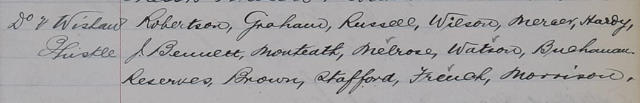 Do v Wishaw Robertson, Graham, Russell, Wilson, Mercer, Hardy,
Thistle J Bennett, Monteath, Melrose, Watson, Buchanan.
Reserves, Brown, Stafford, French, Morrison.